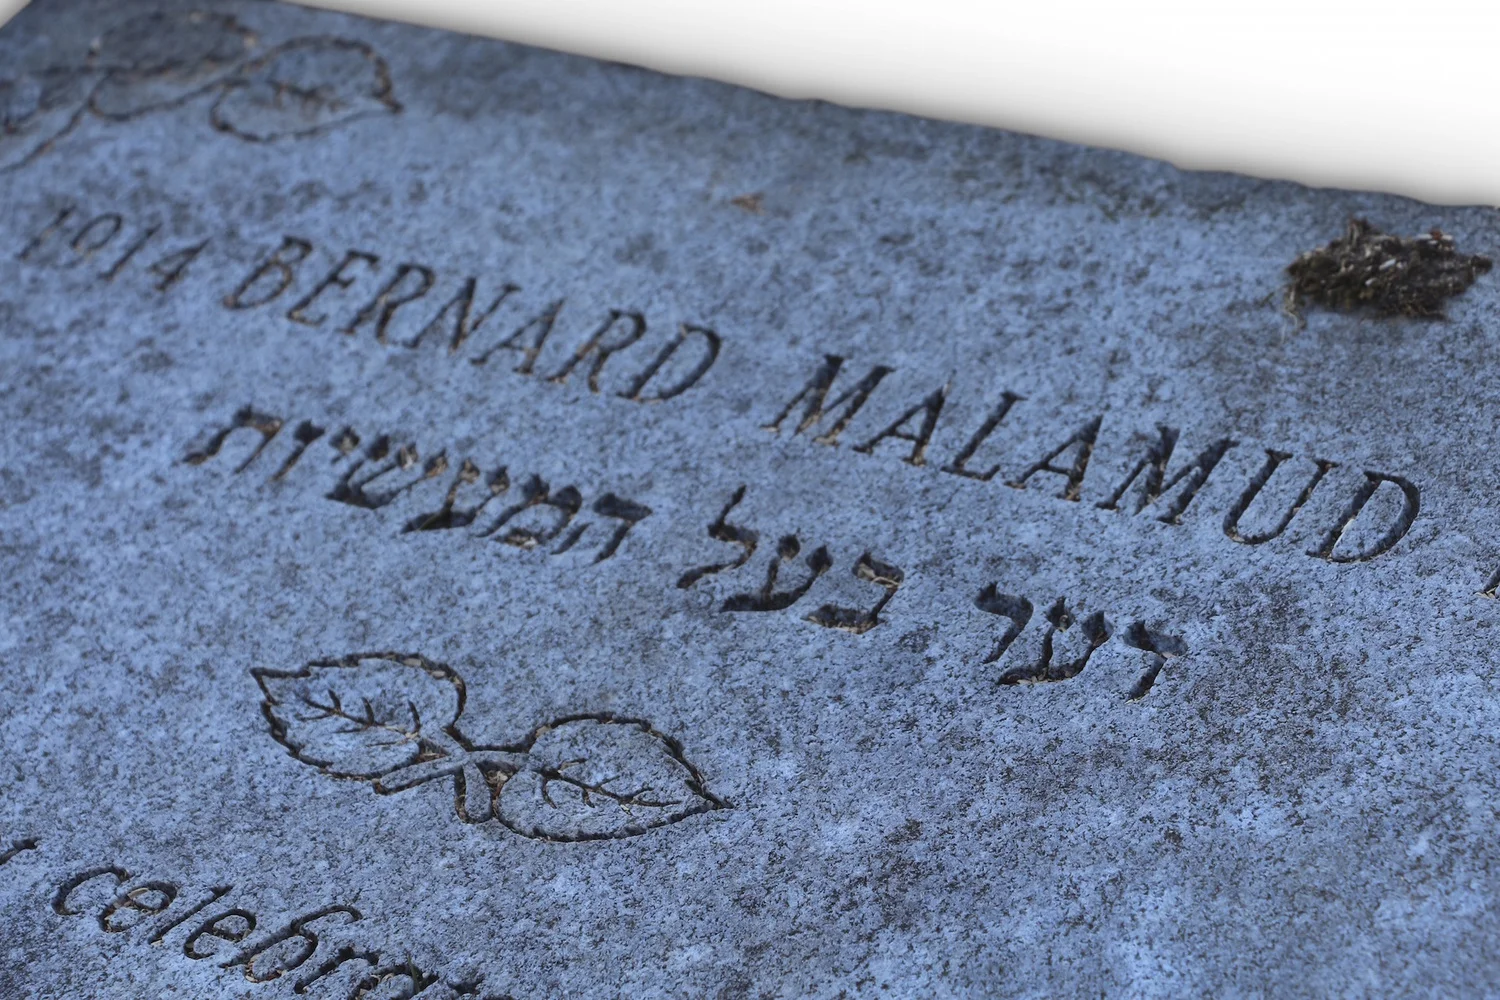 1914 BERNARD MALAMUD
דער בעל המעשיות
celebra